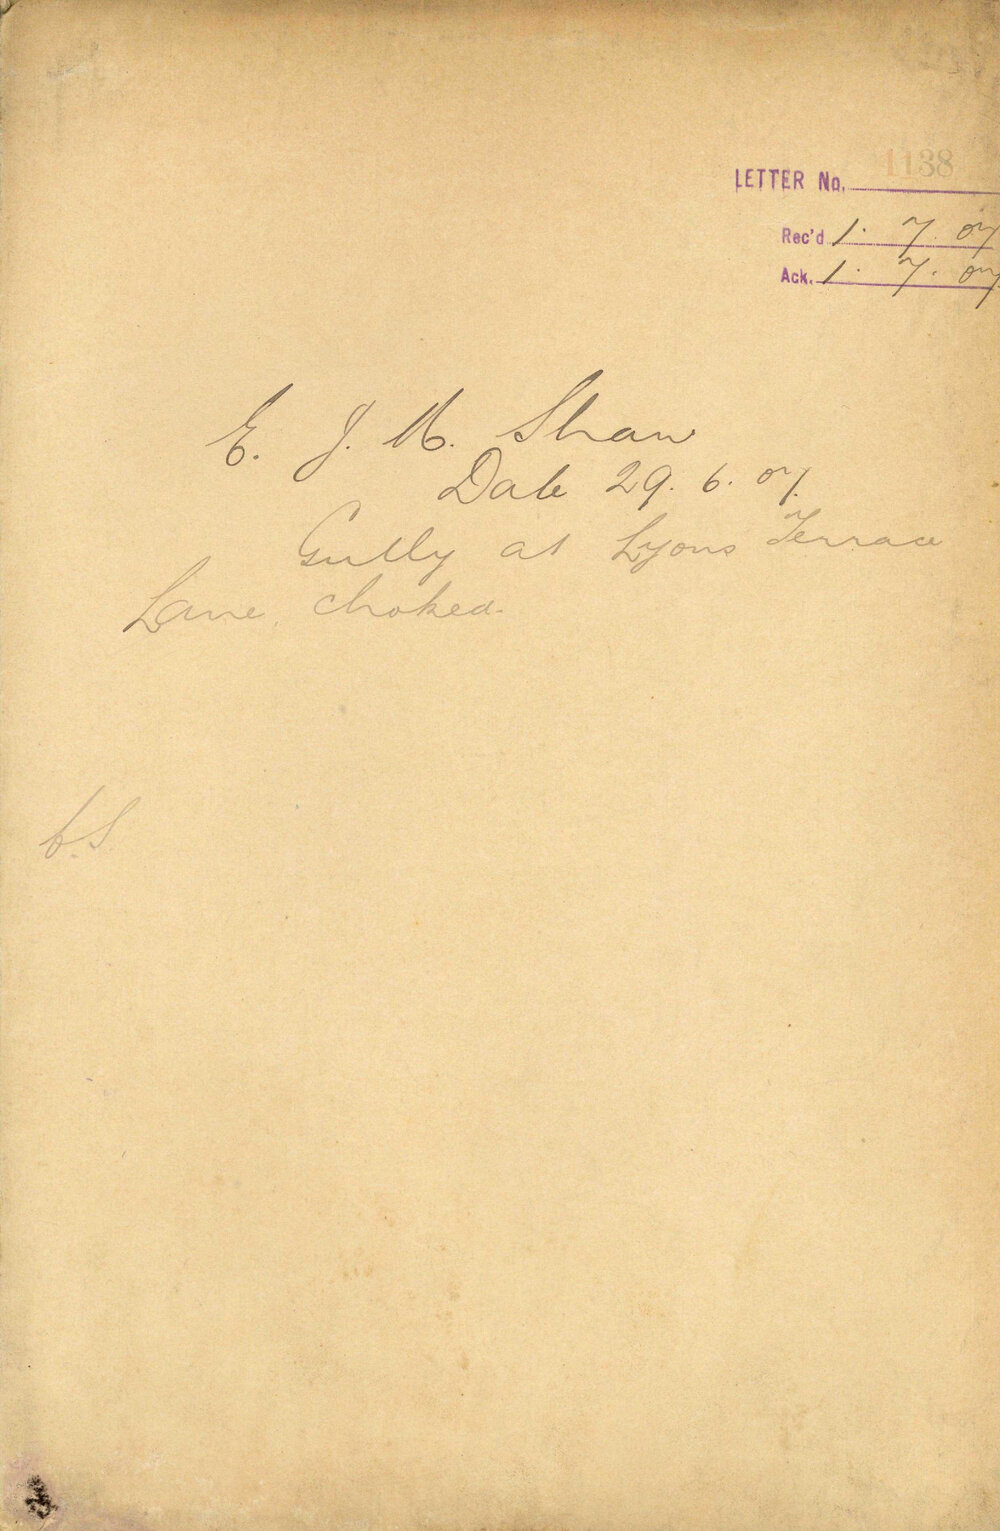 1138
LETTER No.
Rec'd 1. 7. 07
Ack. 1. 7. 07
E. J. M. Shaw
Date 29. 6. 07.
Gully at Lyons Terrace
Lane choked.